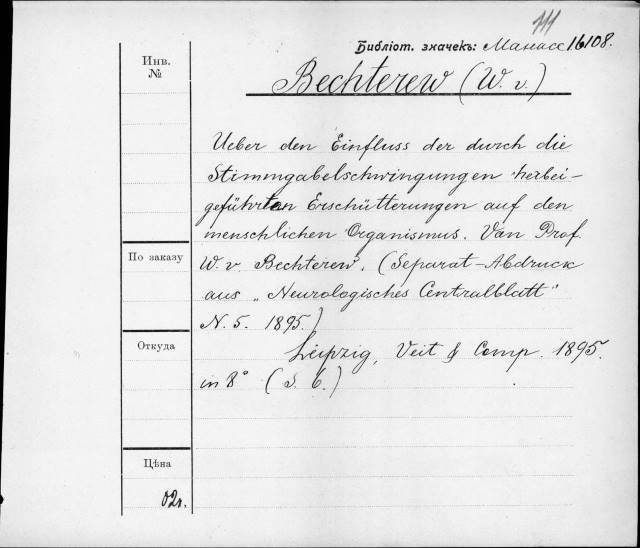 111
Библіот. значекъ: Манасс 16108.
Инв.
№
Bechterew (W. v.)
Ueber den Einfluss der durch die
Stimmgabelschwingungen herbei-
geführten Erschütterungen auf den
menschlichen Organismus. Van Prof.
По заказу
W. v. Bechterew. (Separat-Abdruck
aus „Neurologisches Centralblatt"
N. 5. 1895.)
Откуда
Leipzig, Veit & Comp. 1895.
in 8° (S. 6.)
Цѣна